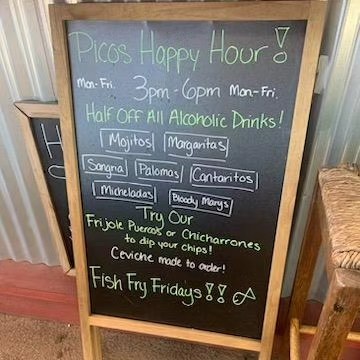 Picos Happy Hour!
Mon-Fri. 3pm-6pm Mon-Fri.
Half Off All Alcoholic Drinks!
Mojitos Margaritas
Sangria Palomas Cantaritos
Micheladas Bloody Marys
Try Our
Frijole Puercos or Chicharrones
to dip your chips!
Ceviche made to order!
Fish Fry Fridays!!